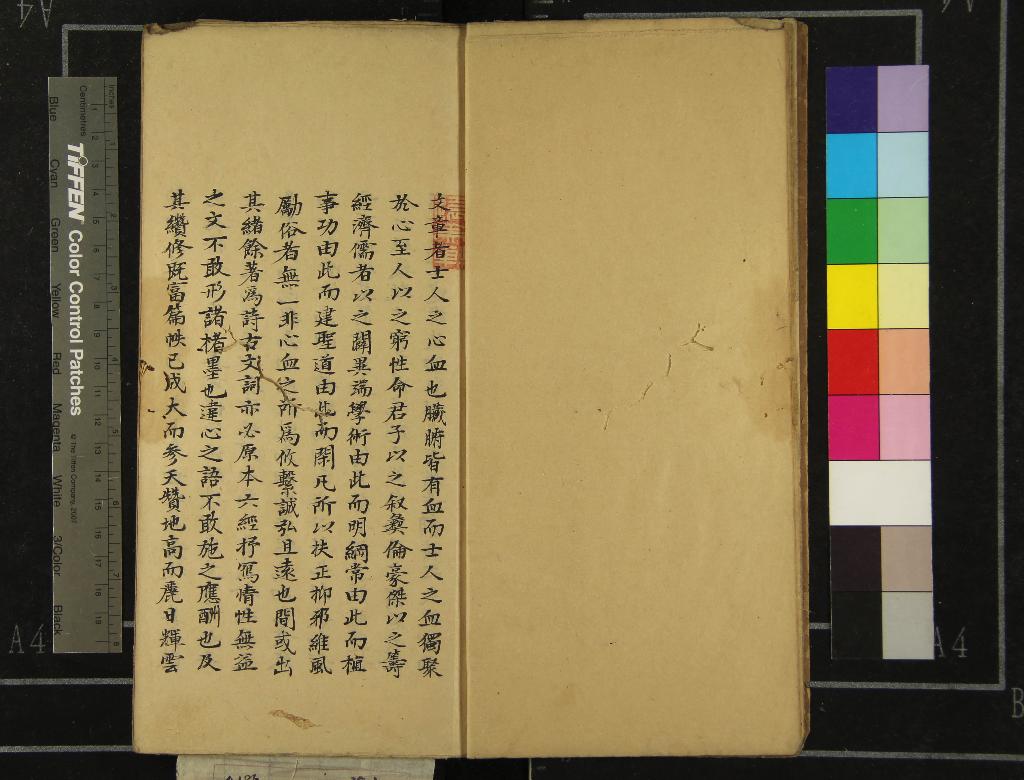 文章者士人之心血也臟腑皆有血而士人之血獨聚
於心至人以之窮性命君子以之叙彝倫豪傑以之籌
經濟儒者以之闢異端學術由此而明綱常由此而植
事功由此而建聖道由此而閑凡所以扶正抑邪維風
勵俗者無一非心血之所為攸繫誠弘且遠也間或出
其緒餘著為詩古文詞亦必原本六經抒寫情性無益
之文不敢形諸楮墨也違心之語不敢施之應酬也及
其纘修既富篇帙已成大而參天贊地高而麗日輝雲
TIFFEN Color Control Patches
© The Tiffen Company, 2007
Centimetres
Inches
Blue
Cyan
Green
Yellow
Red
Magenta
White
3/Color
Black
A4
A4
A4
A4
B